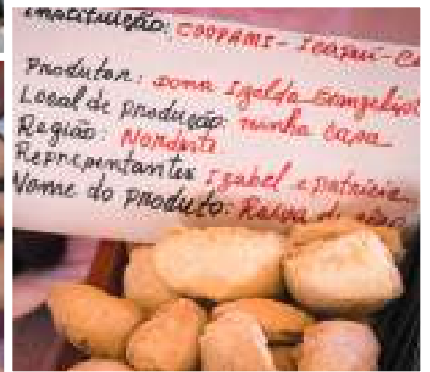 instituição: COOPAMI - Icapuí - Ce
Produtor: Dona Izelda
Local de produção: minha casa
Região: Nordeste
Representantes Izabel e patrícia
Nome do produto: Raiva de